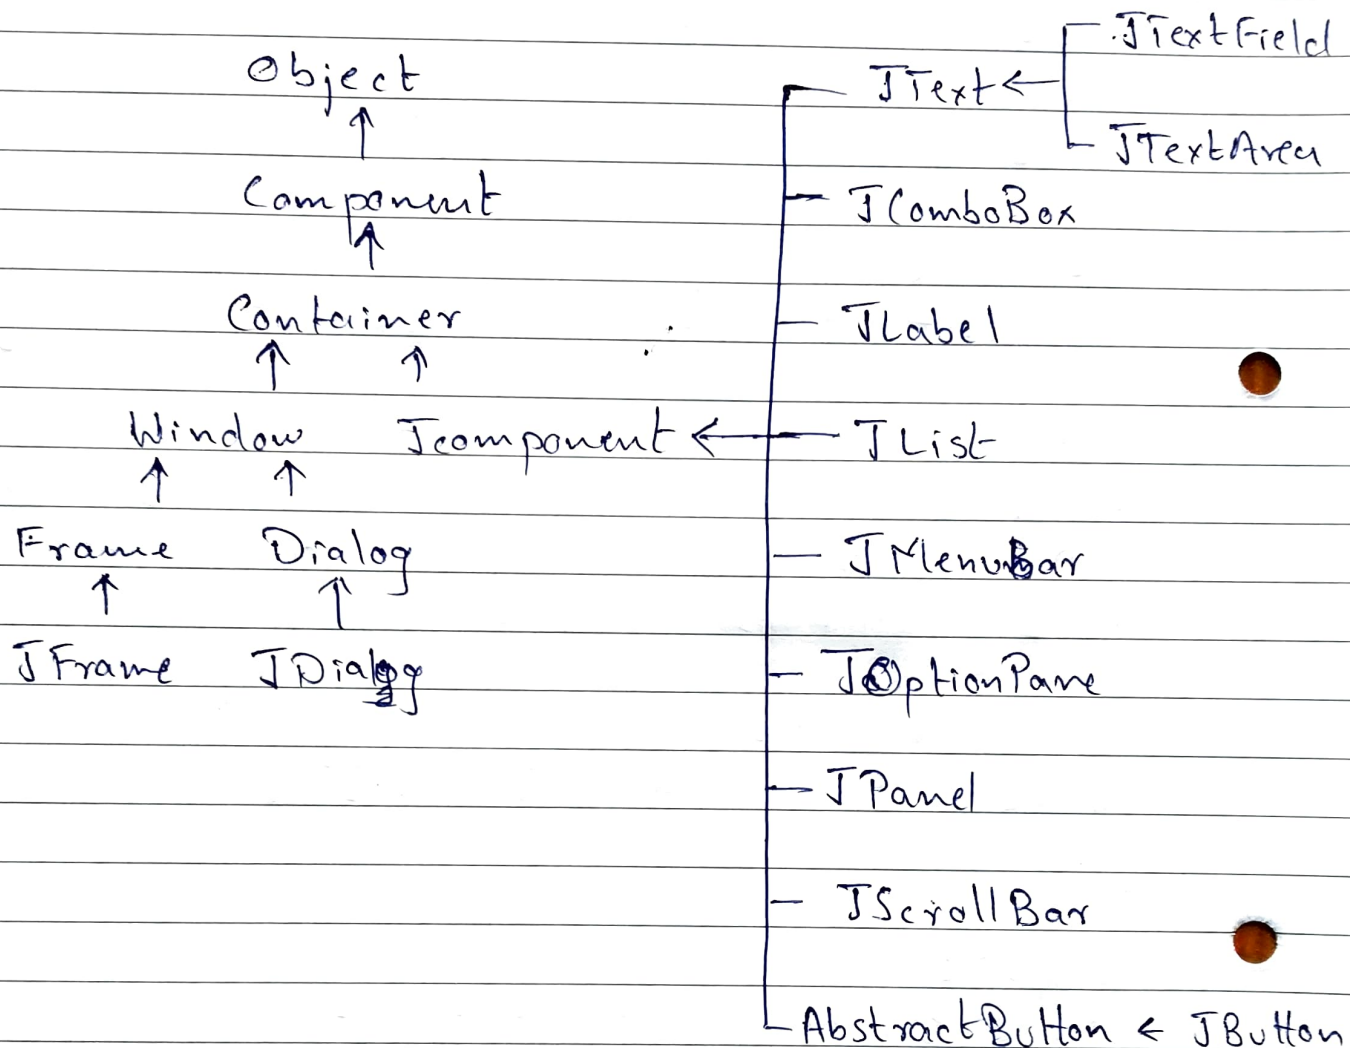 Object
Component
Container
Window Jcomponent
Frame Dialog
JFrame JDialog
JText
JTextField
JTextArea
JComboBox
JLabel
JList
JMenuBar
JOptionPane
JPanel
JScrollBar
AbstractButton ← JButton